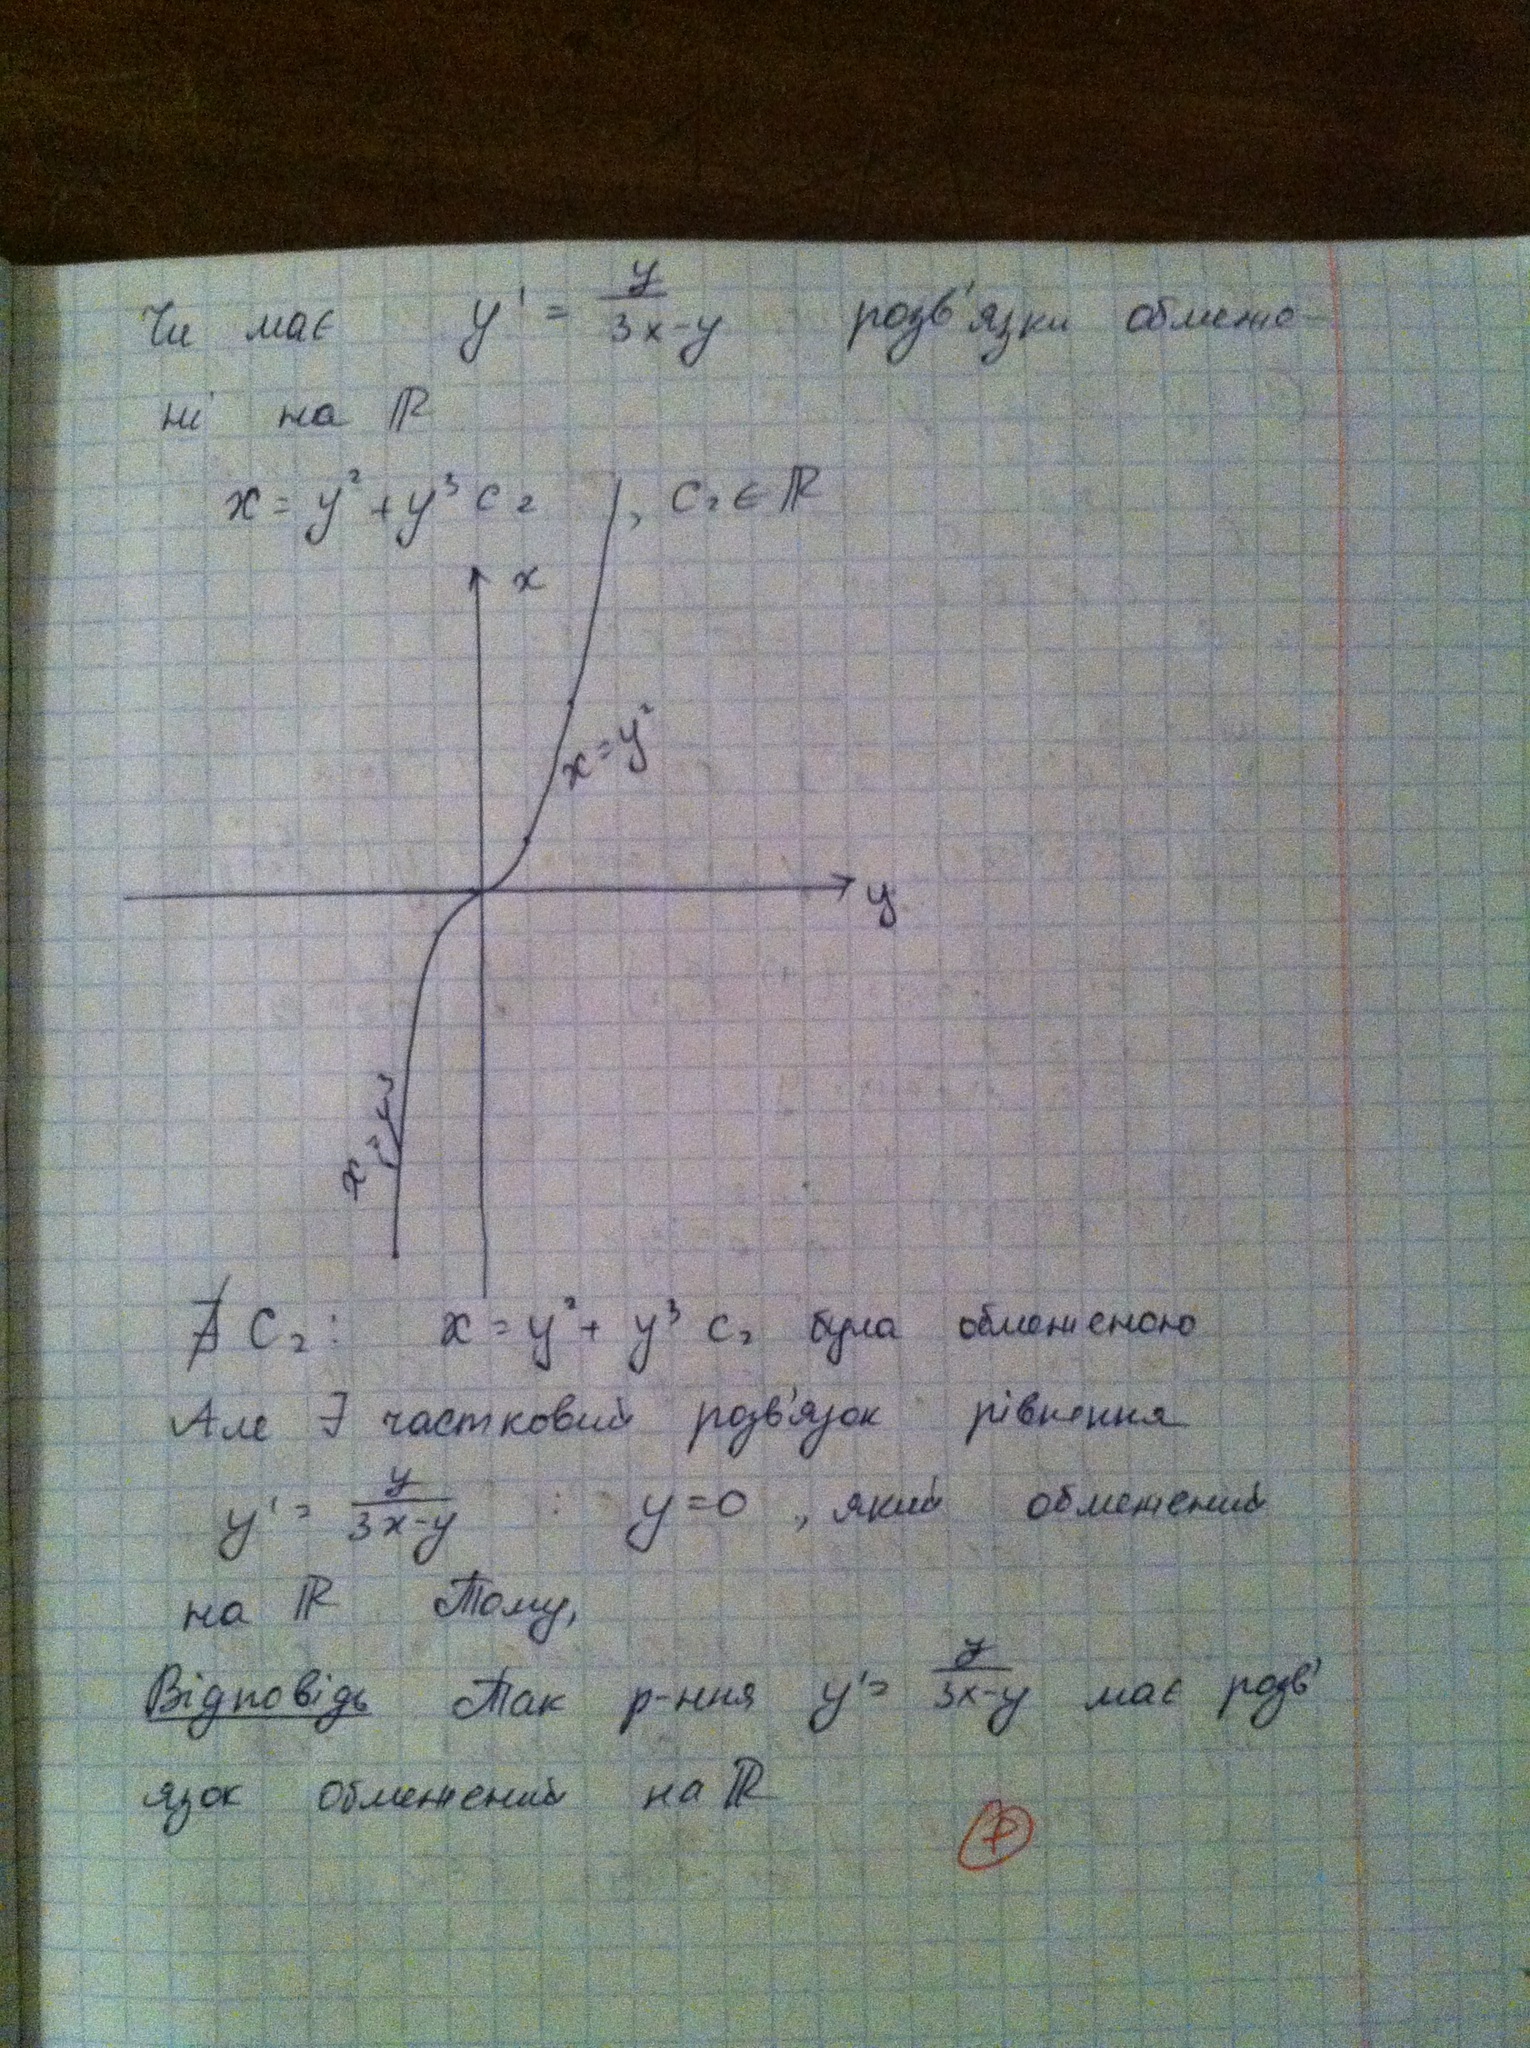 Чи має y' = y/(3x-y) розв'язки обмеже-
ні на ℝ
x = y² + y³ C₂ , C₂ ∈ ℝ
x
x = y²
y
x = y³
∄ C₂ : x = y² + y³ C₂ була обмеженою
Але ∃ частковий розв'язок рівнення
y' = y/(3x-y) : y = 0 , який обмежений
на ℝ Тому,
Відповідь Так р-ння y' = y/(3x-y) має розв'
язок обмежений на ℝ
+